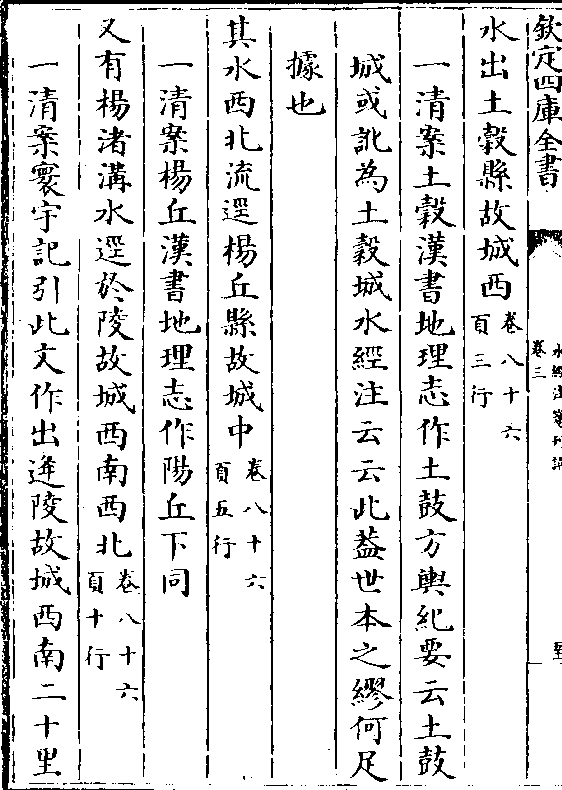 欽定四庫全書
卷三
水出土穀縣故城西卷八十六頁三行
一清案土穀漢書地理志作土鼓方輿紀要云土鼓
城或訛為土穀城水經注云云此葢世本之繆何足
據也
其水西北流逕楊丘縣故城中卷八十六頁五行
一清案楊丘漢書地理志作陽丘下同
又有楊渚溝水逕於陵故城西南西北卷八十六頁十行
一清案寰宇記引此文作出逄陵故城西南二十里